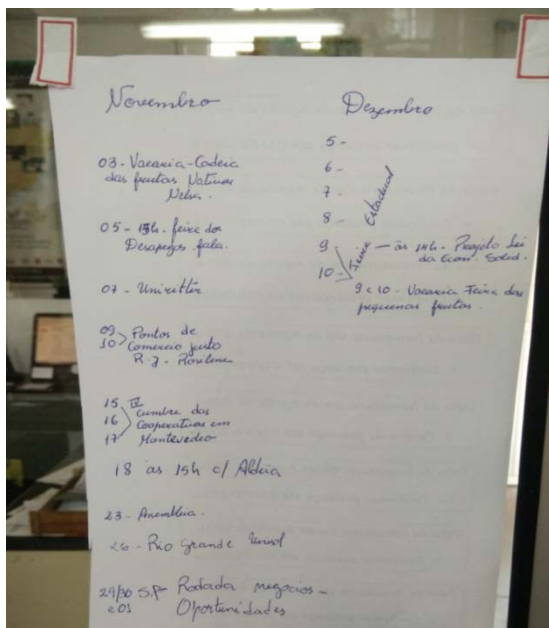 Novembro
03 - Vacaria - Cadeia
das frutas Nativas
Nelsa.
05 - 15h. feira dos
Desapegos fala.
07 - Uniritter
09
10 > Pontos de
Comercio justo
R.J - Roselene
15 IV
16 Cumbre das
17 Cooperativas em
Montevedeo
18 as 15h c/ Aldeia
23 - Assembleia.
26 - Rio Grande
29/30 S.P - Rodada negocios -
e 01 Oportunidades
Dezembro
5 -
6 -
7 -
8 -
9
10 -
Feira Estadual
— às 14h - Projeto Lei
da Econ. Solid.
9 e 10 - Vacaria Feira das
pequenas frutas.